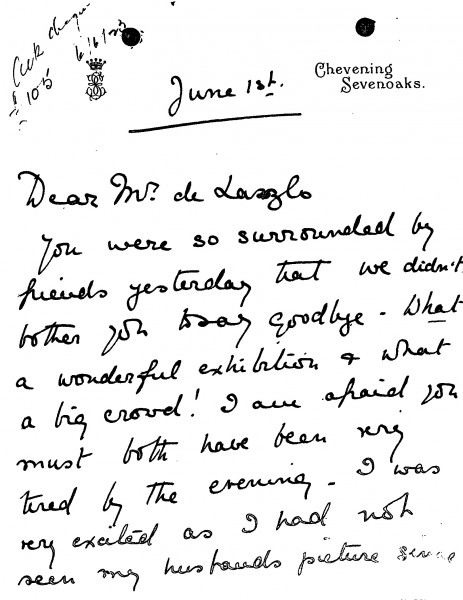 Ack cheque
6/6/23
105
Chevening
Sevenoaks.
June 1st.
Dear Mr. de Laszlo
You were so surrounded by
friends yesterday that we didn't
bother you to say goodbye - What
a wonderful exhibition & what
a big crowd! I am afraid you
must both have been very
tired by the evening - I was
very excited as I had not
seen my husbands picture since